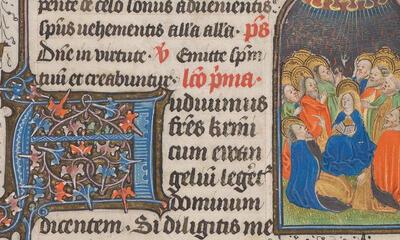 pente de celo sonus aduenientis
spūs uehementis alla alla · p̄s
Dn̄e in virtute · v̄ Emitte spm̄
tuū et creabuntur · lc̄o p̄ma ·
Audiuimus
fr̄es kr̄mi
cum ewan
geliū leget̄
dominum
dicentem · Si diligitis me